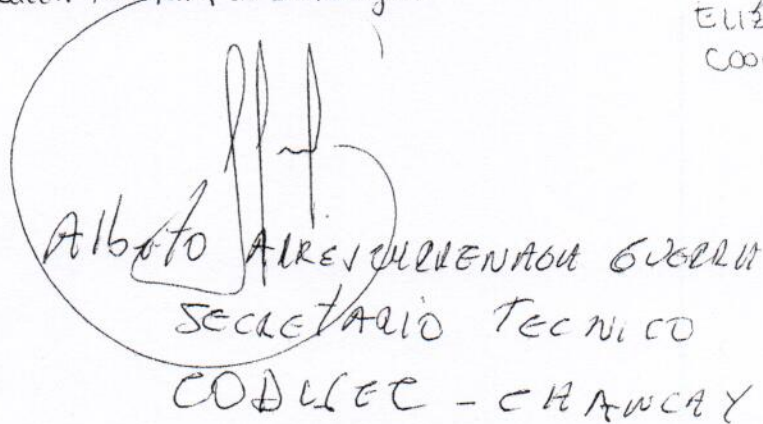 ELIZ
COO
Alberto ARRESCURRENAGA GUERRA
SECRETARIO TECNICO
CODISEC - CHANCAY